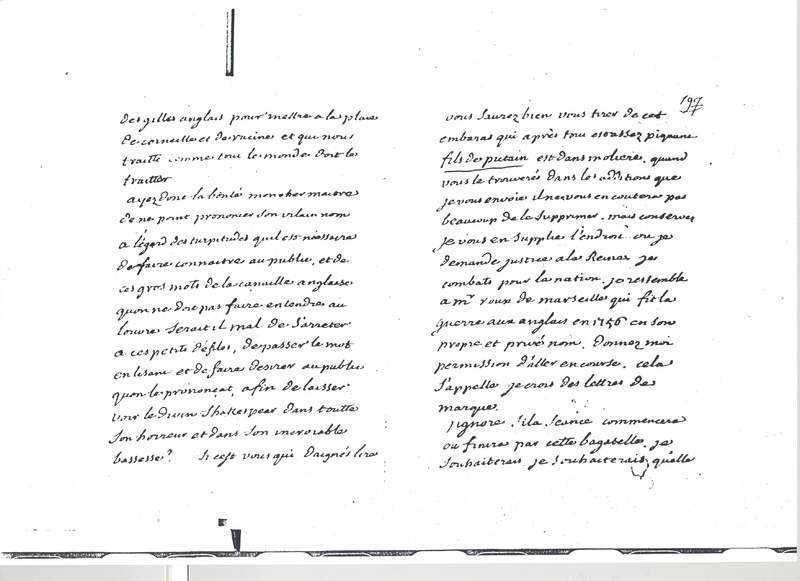 des gilles anglais pour mettre a la place
de corneille et de racine et qui nous
traitte comme tout le monde doit le
traitter
ayez donc la bonté mon cher maitre
de ne point prononcer son vilain nom
a l'égard des turpitudes quil est nécessaire
de faire connaitre au public, et de
ces gros mots de la canaille anglaise
quon ne doit pas faire entendre au
louvre serait il mal de s'arreter
a ces petits défilés, de passer le mot
en lisant et de faire desirer au public
quon le prononçat, afin de laisser
voir le divin Shakespear dans toutte
son horreur et dans son incroiable
bassesse? si c'est vous qui daignés lire
197
vous saurez bien vous tirer de cet
embaras qui après tout est assez piquant
fils de putain est dans moliere. quand
vous le trouverés dans les additions que
je vous envoie il ne vous en coutera pas
beaucoup de le supprimer. mais conservez
je vous en supplie l'endroit ou je
demande justice a la Reine. je
combats pour la nation. je ressemble
a mr roux de marseille qui fit la
guerre aux anglais en 1756 en son
propre et privé nom. Donnez moi
permission d'aller en course. cela
s'appelle je crois des lettres de
marque.
j'ignore si la séance commencera
ou finira par cette bagatelle. je
souhaiterais je souhaiterais quelle